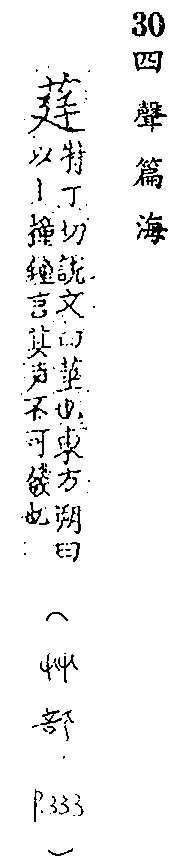 30 四聲篇海
莛 特丁切說文曰莖也東方朔曰
以丨撞鍾言其声不可發也
(艸部.P.333)